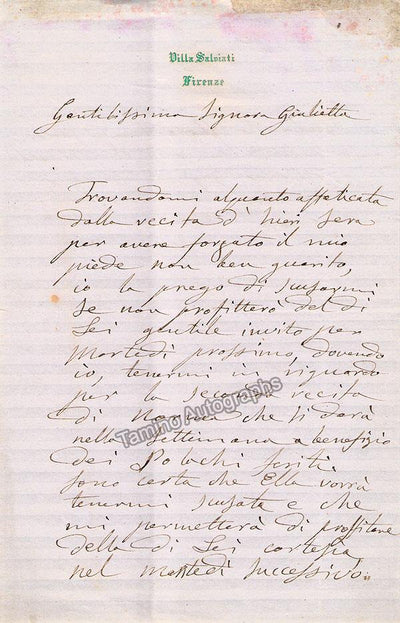 Villa Salviati
Firenze
Gentilissima Signora Giulietta
Trovandomi alquanto affaticata
dalla recita d' hieri sera
per avere forzato il mio
piede non ben guarito,
io la prego di scusarmi
se non profitterò del di
Lei gentile invito per
Martedì prossimo, dovendo
io, tenermi in riguardo
per la seconda recita
di Norma che si darà
nella settimana a benefizio
dei Polachi feriti,
sono certa che Ella vorrà
tenermi scusata e che
mi permetterà di profittare
della di Lei cortesia
nel martedì successivo.
Tamino Autographs